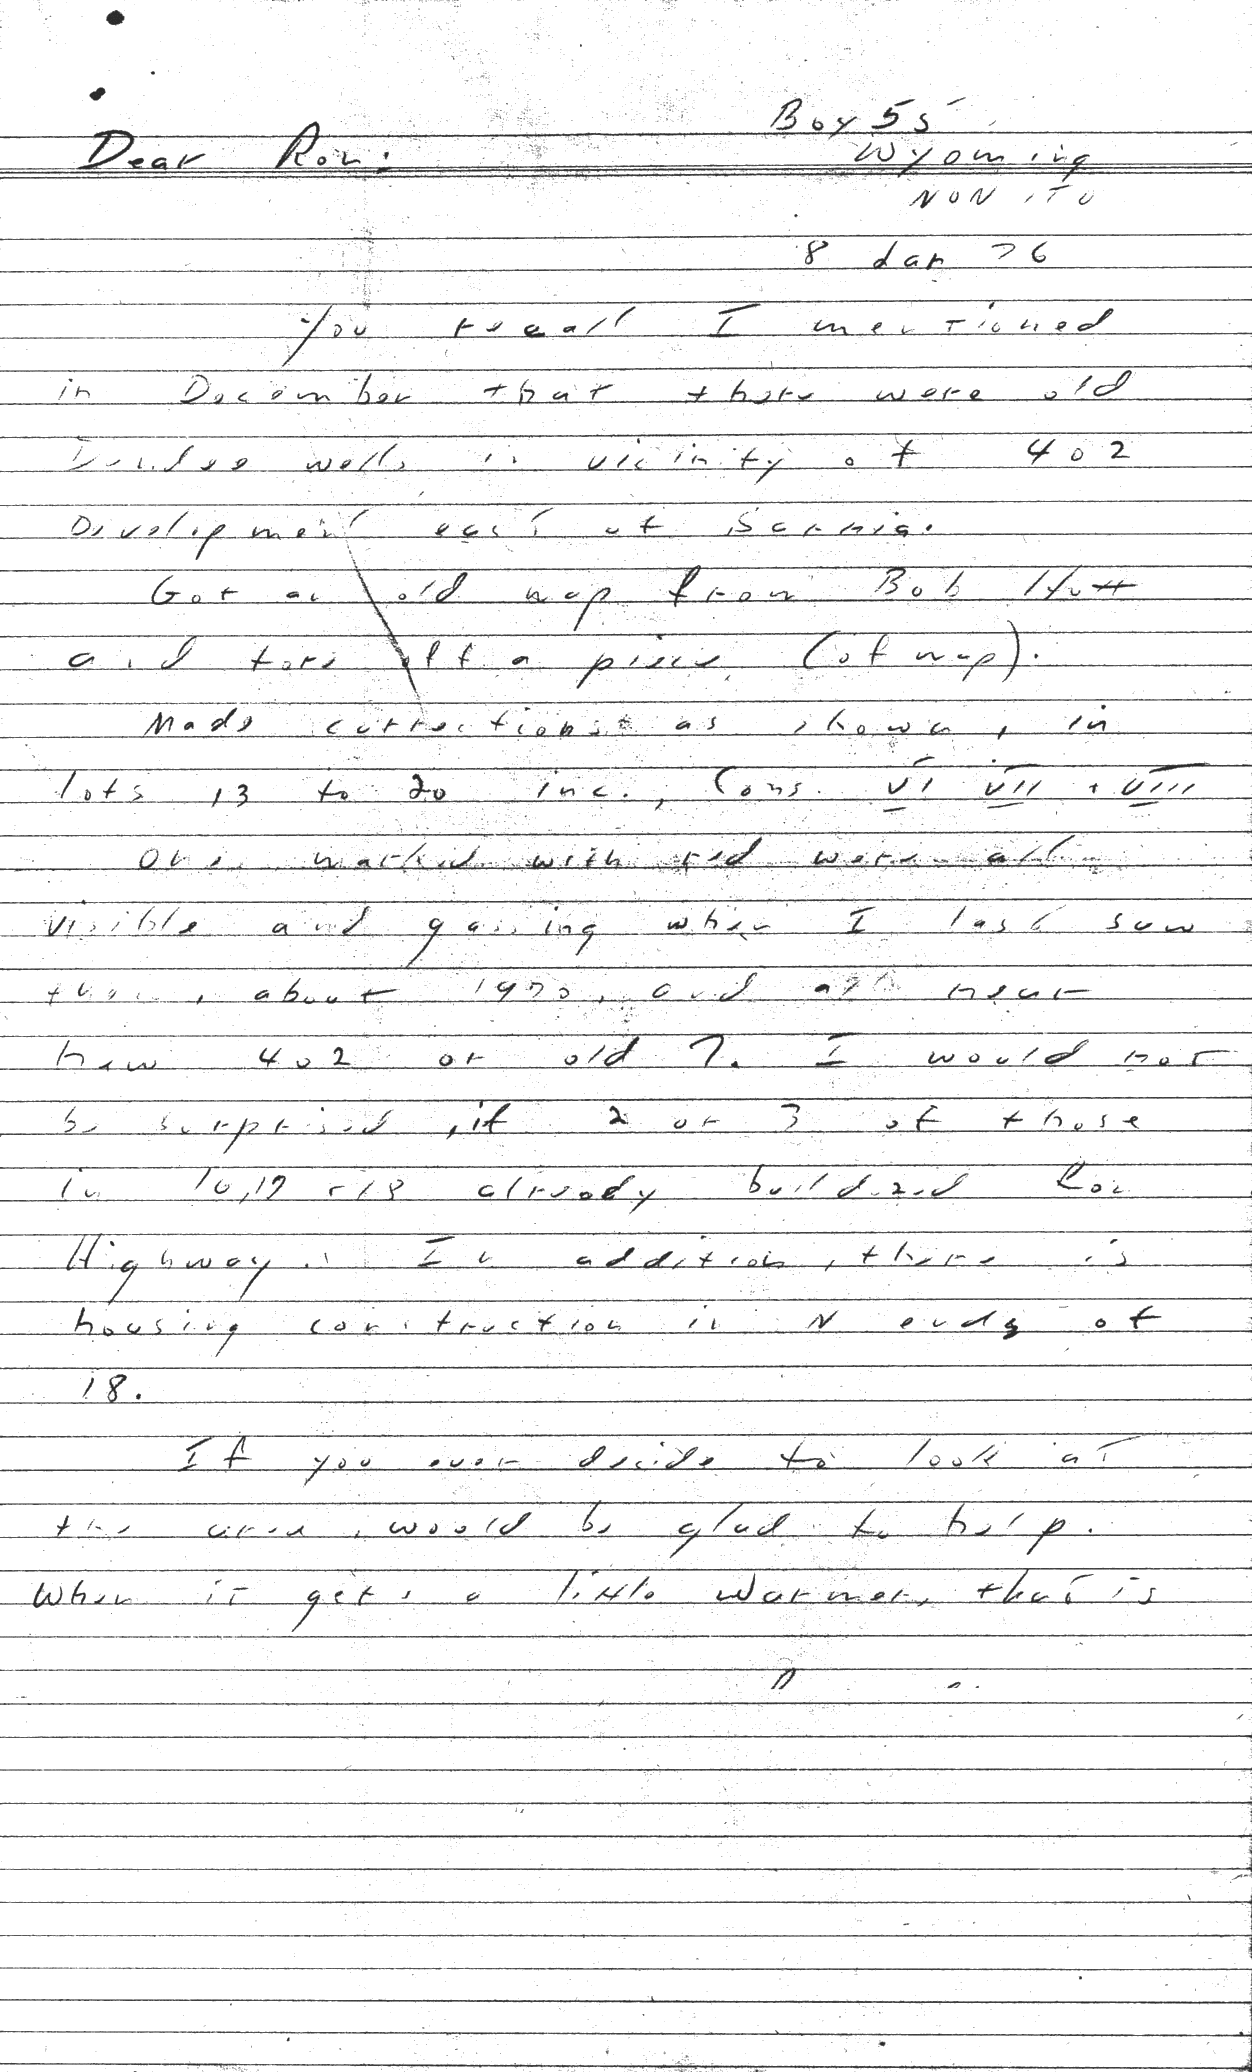 Box 55
Dear Ron:
Wyoming
NON ITO
8 Jan 76
You recall I mentioned
in December that there were old
Dundee wells in vicinity of 402
Development east of Sarnia.
Got an old map from Bob Hutt
and tore off a piece (of map).
Made corrections as shown, in
lots 13 to 20 inc., Cons. VI VII + VIII
Ones marked with red were all
visible and gassing when I last saw
them, about 1970, and all near
new 402 or old 7. I would not
be surprised, if 2 or 3 of those
in 16,17 +18 already bulldozed for
Highway. In addition, there is
housing construction in N end of
18.
If you ever decide to look at
the area, would be glad to help.
When it gets a little warmer, that is